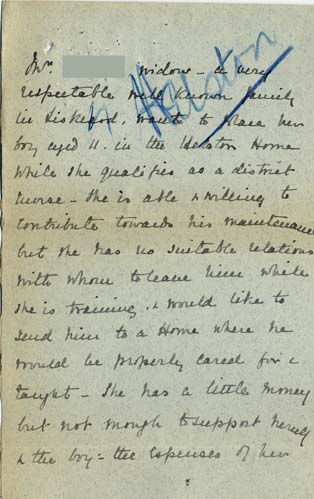 Mrs. widow - a very
respectable well known family
in Liskeard, want to place her
boy aged 11. in the Helston Home
while she qualifies as a district
nurse - She is able & willing to
contribute towards his maintenance
but she has no suitable relations
with whom to leave him while
she is training. & would like to
send him to a Home where he
would be properly cared for &
taught - She has a little money
but not enough to support herself
& the boy - the expenses of her
Helston